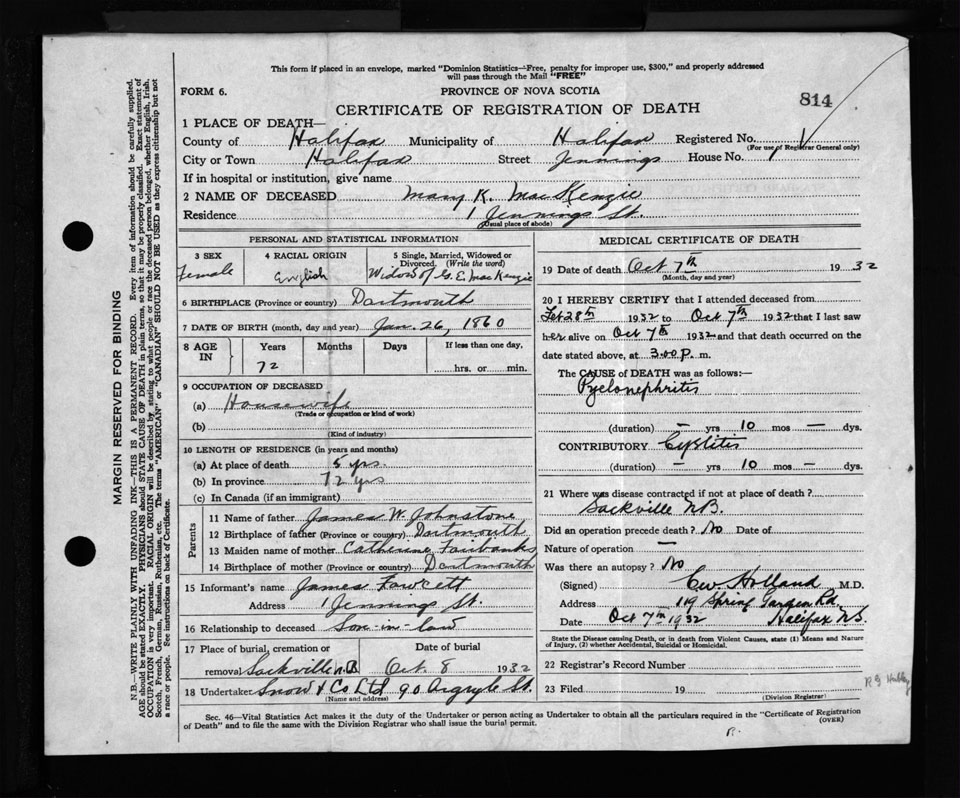 This form if placed in an envelope, marked "Dominion Statistics—Free, penalty for improper use, $300," and properly addressed
will pass through the Mail "FREE"
FORM 6.
PROVINCE OF NOVA SCOTIA
814
CERTIFICATE OF REGISTRATION OF DEATH
1 PLACE OF DEATH—
County of Halifax Municipality of Halifax Registered No.
(For use of Registrar General only)
City or Town Halifax Street Jennings House No. 1
If in hospital or institution, give name
2 NAME OF DECEASED Mary K. MacKenzie
Residence 1 Jennings St.
(Usual place of abode)
PERSONAL AND STATISTICAL INFORMATION
3 SEX 4 RACIAL ORIGIN 5 Single, Married, Widowed or
Divorced. (Write the word)
Female English Widow of G. E. MacKenzie
6 BIRTHPLACE (Province or country) Dartmouth
7 DATE OF BIRTH (month, day and year) Jan. 26, 1860
8 AGE IN Years Months Days If less than one day,
72 hrs. or min.
9 OCCUPATION OF DECEASED
(a) Housewife
(Trade or occupation or kind of work)
(b)
(Kind of industry)
10 LENGTH OF RESIDENCE (in years and months)
(a) At place of death 5 yrs.
(b) In province 72 yrs
(c) In Canada (if an immigrant)
Parents
11 Name of father James W. Johnstone
12 Birthplace of father (Province or country) Dartmouth
13 Maiden name of mother Catherine Fairbanks
14 Birthplace of mother (Province or country) Dartmouth
15 Informant's name James Fawcett
Address 1 Jennings St.
16 Relationship to deceased Son-in-law
17 Place of burial, cremation or Date of burial
removal Sackville N.B Oct. 8 1932
18 Undertaker Snow & Co Ltd 90 Argyle St.
(Name and address)
MEDICAL CERTIFICATE OF DEATH
19 Date of death Oct 7th 1932
(Month, day and year)
20 I HEREBY CERTIFY that I attended deceased from
Feb 28th 1932 to Oct 7th 1932 that I last saw
her alive on Oct 7th 1932 and that death occurred on the
date stated above, at 3.00 P. m.
The CAUSE of DEATH was as follows:—
Pyelonephritis
(duration) — yrs 10 mos — dys.
CONTRIBUTORY Cystitis
(duration) — yrs 10 mos — dys.
21 Where was disease contracted if not at place of death?
Sackville N.B.
Did an operation precede death? No Date of
Nature of operation —
Was there an autopsy? No
(Signed) CW Holland M.D.
Address 119 Spring Garden Rd.
Date Oct 7th 1932 Halifax N.S.
State the Disease causing Death, or in death from Violent Causes, state (1) Means and Nature
of Injury, (2) whether Accidental, Suicidal or Homicidal.
22 Registrar's Record Number
23 Filed 19
(Division Registrar)
Sec. 46—Vital Statistics Act makes it the duty of the Undertaker or person acting as Undertaker to obtain all the particulars required in the "Certificate of Registration
of Death" and to file the same with the Division Registrar who shall issue the burial permit.
(OVER)
MARGIN RESERVED FOR BINDING
N.B.—WRITE PLAINLY WITH UNFADING INK—THIS IS A PERMANENT RECORD. Every item of information should be carefully supplied.
AGE should be stated EXACTLY. PHYSICIANS should STATE CAUSE OF DEATH in plain terms, so that it may be properly classified. Exact statement of
OCCUPATION is very important. RACIAL ORIGIN will be described by stating to what people or race the deceased person belonged, whether English, Irish,
Scotch, French, German, Russian, Ruthenian, etc. The terms "AMERICAN" or "CANADIAN" SHOULD NOT BE USED as they express citizenship but not
a race or people. See instructions on back of Certificate.